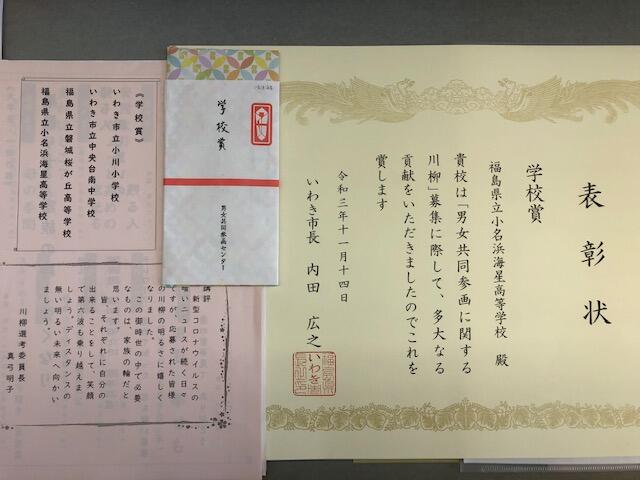 表彰状
学校賞
福島県立小名浜海星高等学校 殿
貴校は「男女共同参画に関する
川柳」募集に際して、多大なる
貢献をいただきましたのでこれを
賞します
令和三年十一月十四日
いわき市長 内田 広之
学校賞
男女共同参画センター
《学校賞》
いわき市立小川小学校
いわき市立中央台南中学校
福島県立磐城桜が丘高等学校
福島県立小名浜海星高等学校
講評
新型コロナウイルスの
暗いニュースが続く日々
ですが、応募された皆様
の川柳の明るさに嬉しく
なりました。
この御時世の中で必要
なものは、家族の輪だと
思います。
皆、それぞれに自分の
出来ることをして、笑顔
で第六波も乗り越えま
しょう。ディスタンスの
無い明るい未来へ向かい
ましょう。
川柳選考委員長
真弓明子